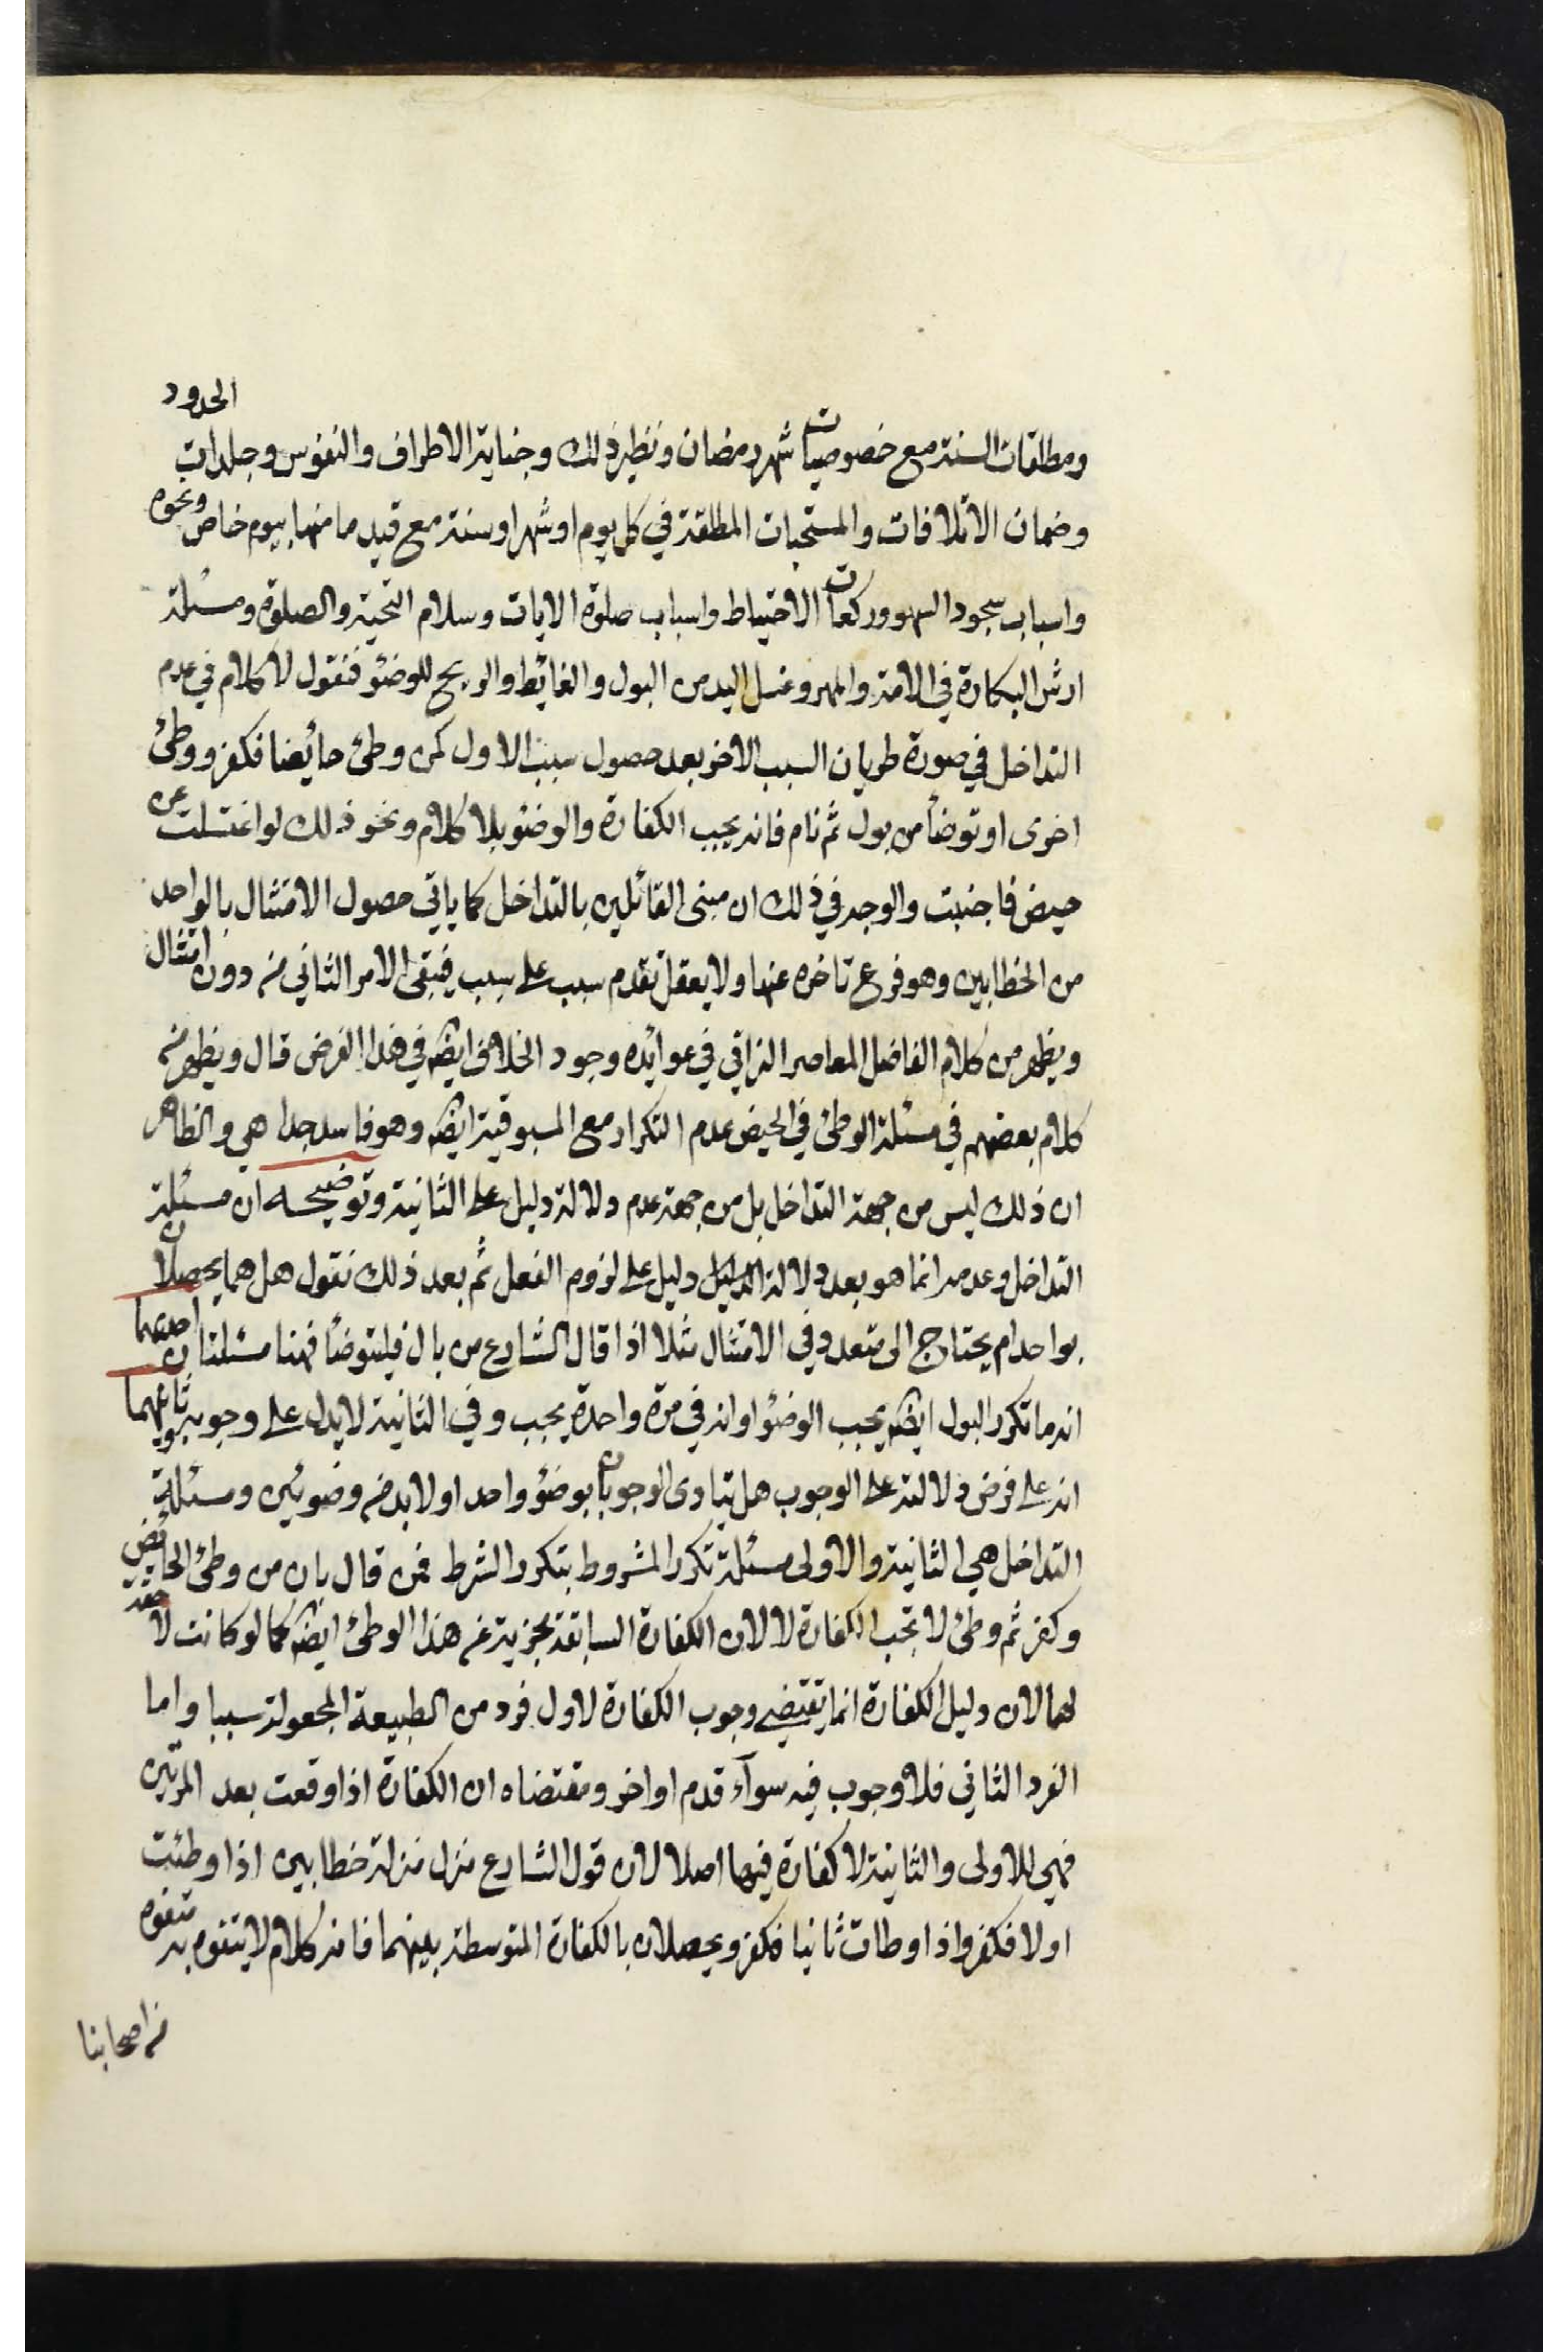 ومطلقات السنة مع خصوصيات شهر رمضان ونظير ذلك وجناية الاطراف والنفوس وجلدات الحدود
وضمان الاتلافات والمستحبات المطلقة في كل يوم او شهر او سنة مع قيد ما منها بيوم خاص ونحوه
واسباب سجود السهو وركعات الاحتياط واسباب صلوة الايات وسلام التحية والصلوة ومسئلة
ارش البكارة في الامة والمهر وغسل اليد من البول والغائط والريح للوضؤ فنقول لا كلام في عدم
التداخل في صورة طريان السبب الاخر بعد حصول سبب الاول كمن وطئ حائضا فكفر ووطئ
اخرى او توضأ من بول ثم نام فانه يجب الكفارة والوضؤ بلا كلام ونحو ذلك لو اغتسلت عن
حيض فاجنبت والوجه في ذلك ان مبنى القائلين بالتداخل كما ياتي حصول الامتثال بالواحد
من الخطابين وهو فرع تاخره عنها ولا يعقل تقدم سبب على سبب فيبقى الامر الثاني منه دون امتثال
ويظهر من كلام الفاضل المعاصر النراقي في عوائده وجود الخلاف ايضه في هذا الفرض قال ويظهر من
كلام بعضهم في مسئلة الوطئ في الحيض عدم التكرار مع المسبوقية ايضه وهو فاسد جدا هي والظاهر
ان ذلك ليس من جهة التداخل بل من جهة عدم دلالة دليل على الثانية وتوضيحه ان مسئلة
التداخل وعدمه انما هو بعد دلالة الدليل دليل على لزوم الفعل ثم بعد ذلك نقول هل هما يحصلان
بواحد ام يحتاج الى متعدد في الامتثال مثلا اذا قال الشارع من بال فليتوضأ فهنا مسئلتان احديهما
انه ما تكرر البول ايضه يجب الوضؤ او انه في مرة واحدة يجب وفي الثانية لا يدل على وجوبه وثانيهما
انه على فرض دلالته على الوجوب هل يتادى الوجوبان بوضؤ واحد او لا بد من وضوئين ومسئلة
التداخل هي الثانية والاولى مسئلة تكرر المشروط بتكرر الشرط فمن قال بان من وطئ الحائض
وكفر ثم وطئ لا تجب الكفارة لا لان الكفارة السابقة مجزية عن هذا الوطئ ايضه كما لو كانت لاحقة
لهما لان دليل الكفارة انما يقتضي وجوب الكفارة لاول فرد من الطبيعة المجعولة سببا واما
الفرد الثاني فلا وجوب فيه سوآء قدم او اخر ومقتضاه ان الكفارة اذا وقعت بعد المرتين
فهي للاولى والثانية لا كفارة فيها اصلا لان قول الشارع منزل منزلة خطابين اذا وطئت
اولا فكفر واذا وطات ثانيا فكفر ويحصلان بالكفارة المتوسطة بينهما فانه كلام لا يتفوه به متفوه
من اصحابنا